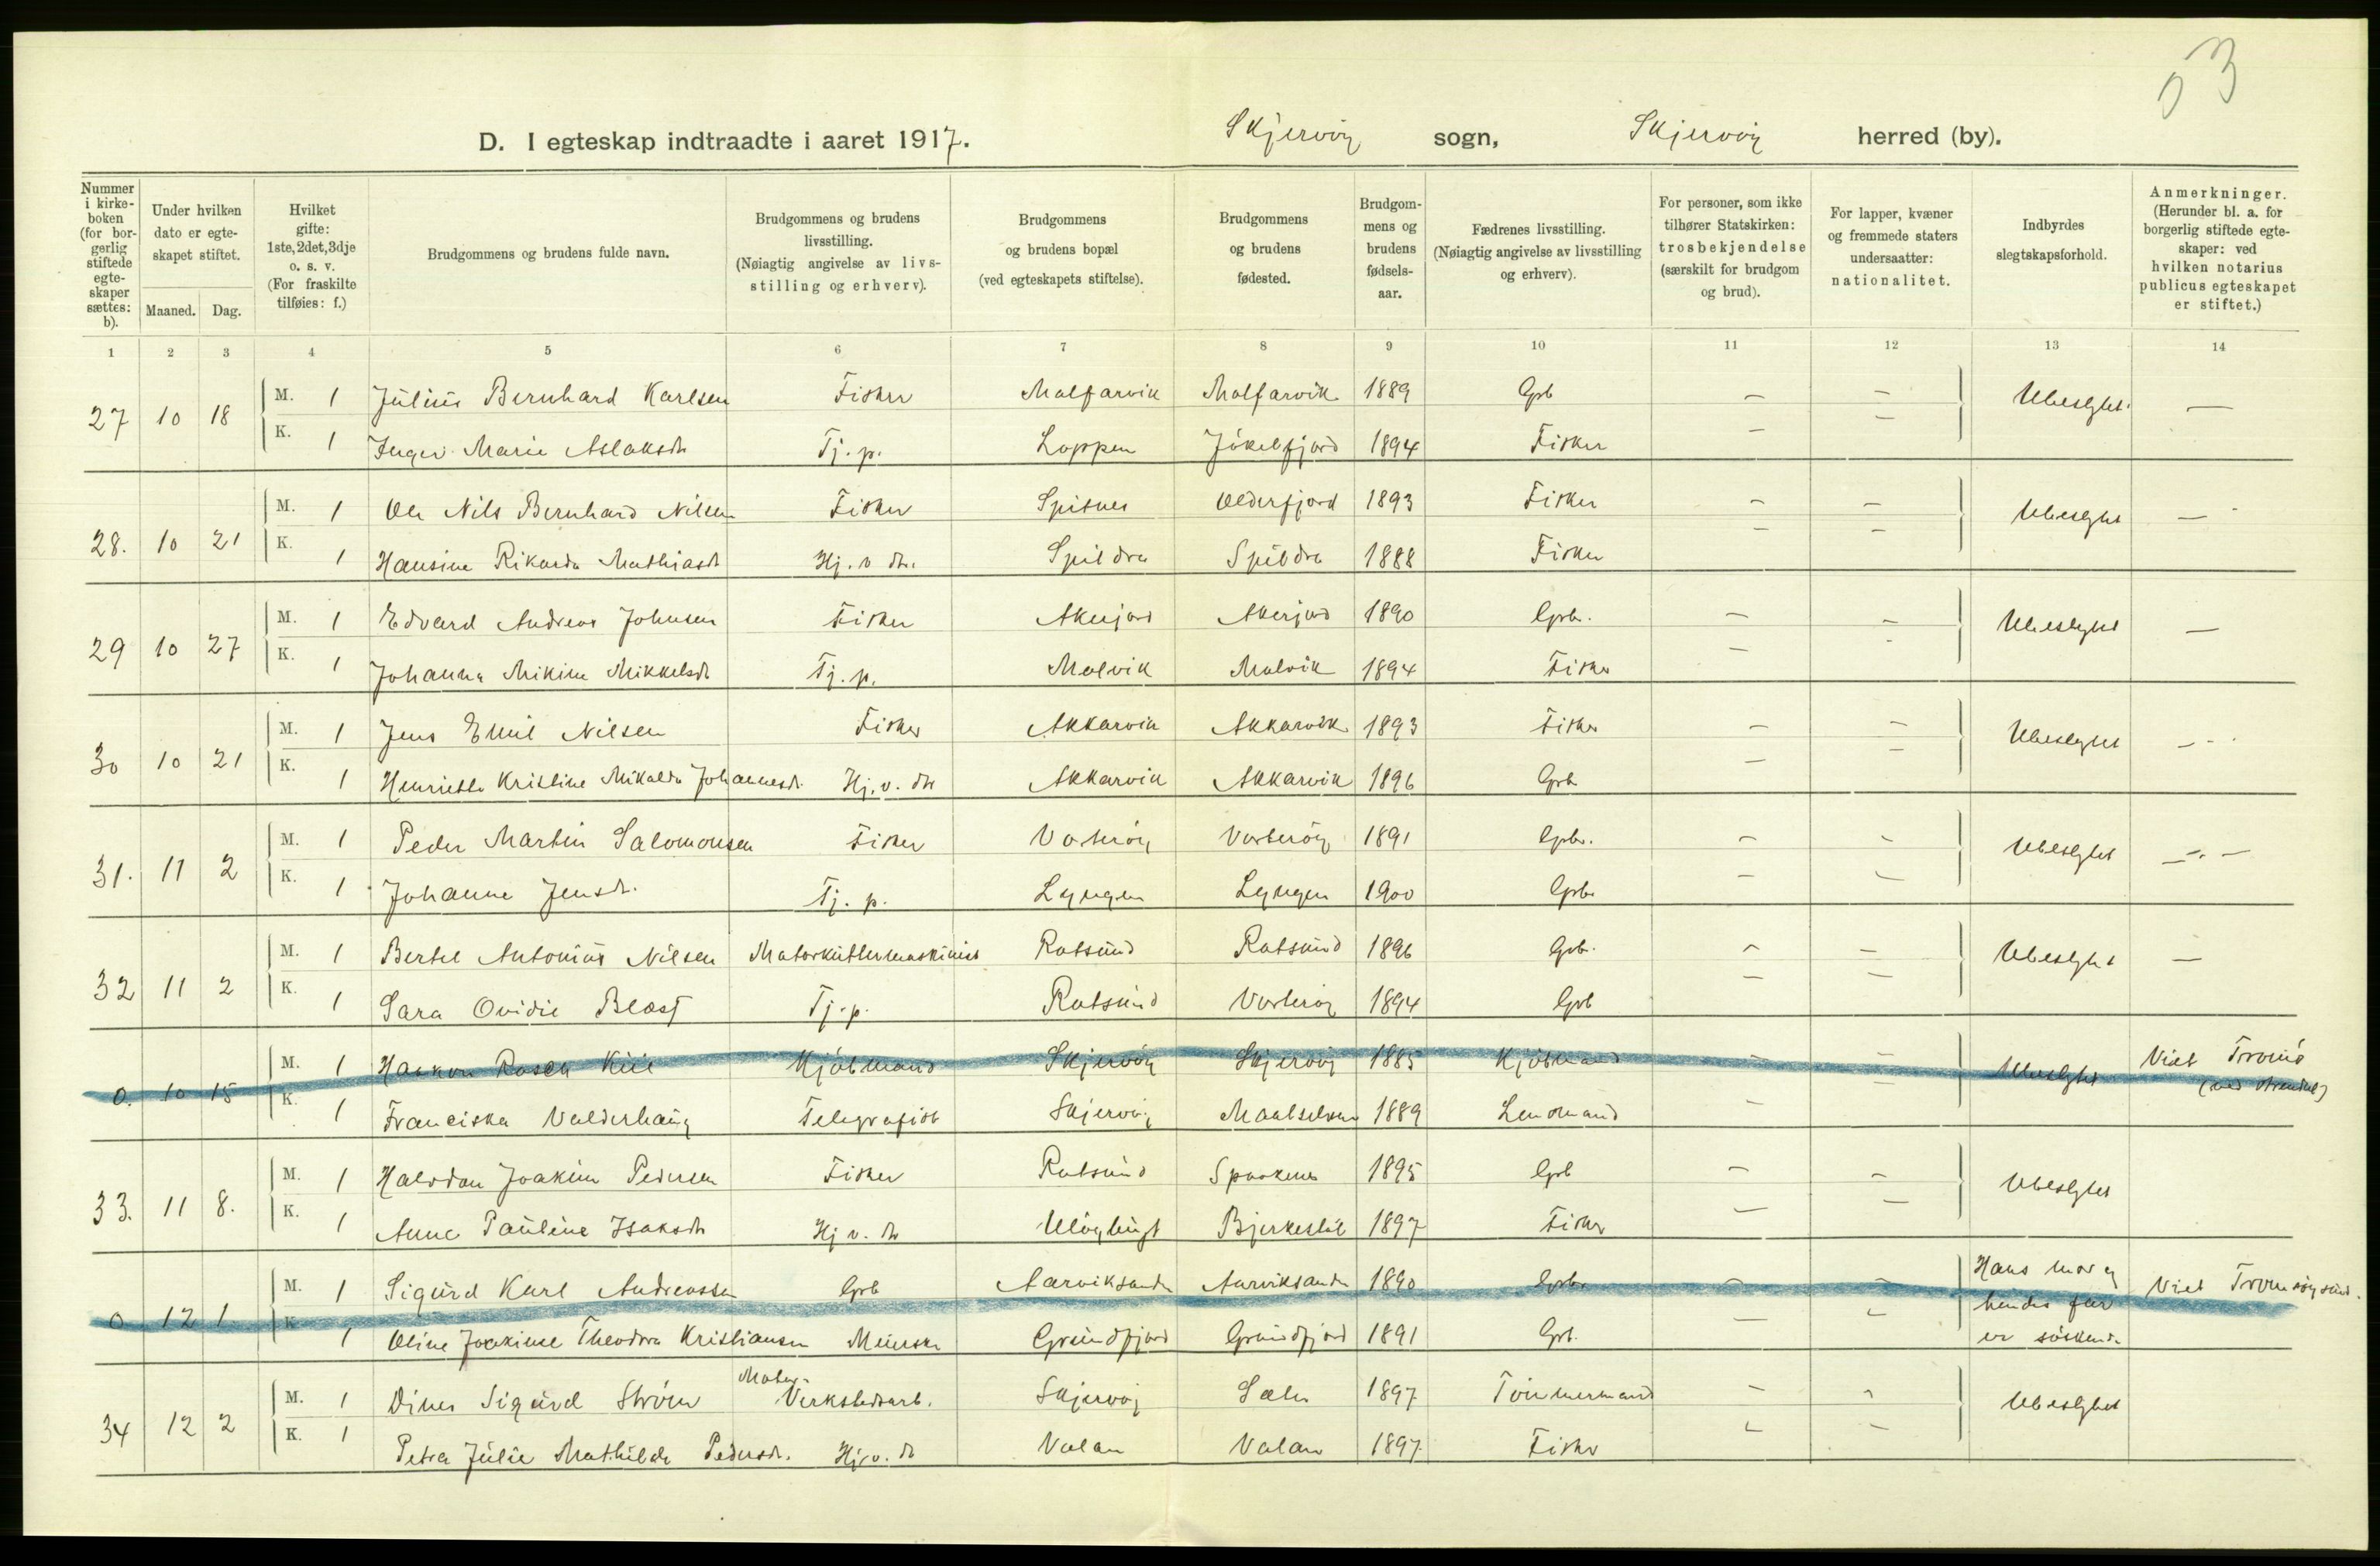 3
D. I egteskap indtraadte i aaret 1917. Skjervöy sogn, Skjervöy herred (by).
Nummer i kirkeboken (for borgerlig stiftede egteskaper sættes: b). Under hvilken dato er egteskapet stiftet. Maaned. Dag. Hvilket gifte: 1ste, 2det, 3dje o. s. v. (For fraskilte tilføies: f.) Brudgommens og brudens fulde navn. Brudgommens og brudens livsstilling. (Nøiagtig angivelse av livsstilling og erhverv). Brudgommens og brudens bopæl (ved egteskapets stiftelse). Brudgommens og brudens fødested. Brudgommens og brudens fødselsaar. Fædrenes livsstilling. (Nøiagtig angivelse av livsstilling og erhverv). For personer, som ikke tilhører Statskirken: trosbekjendelse (særskilt for brudgom og brud). For lapper, kvæner og fremmede staters undersaatter: nationalitet. Indbyrdes slegtskapsforhold. Anmerkninger. (Herunder bl. a. for borgerlig stiftede egteskaper: ved hvilken notarius publicus egteskapet er stiftet.)
1 2 3 4 5 6 7 8 9 10 11 12 13 14
27 10 18 M. 1 Julius Bernhard Karlsen Fisker Malfarvik Malfarvik 1889 Grb — — Ubeslgtet —
K. 1 Inger Marie Aslaksdt Tj. p. Loppen Jökelfjord 1894 Fisker — —
28. 10 21 M. 1 Ole Nils Bernhard Nilsen Fisker Spitnes Olderfjord 1893 Fisker — — Ubeslgtet —
K. 1 Hansine Rikarda Mathiasdt Hj. v dtr. Spildra Spildra 1888 Fisker — —
29 10 27 M. 1 Edvard Andreas Johnsen Fisker Akerjord Akerjord 1890 Grb. — — Ubeslgtet —
K. 1 Johanna Mikine Mikkelsdt Tj. p. Malvik Malvik 1894 Fisker — -
30 10 21 M. 1 Jens Emil Nilsen Fisker Akkarvik Akkarvik 1893 Fisker — — Ubeslgtet —
K. 1 Henriette Kristine Mikalda Johannesdt. Hj. v. dtr Akkarvik Akkarvik 1896 Grb — —
31. 11 2 M. 1 Peder Martin Salomonsen Fisker Vorteröy Vorteröy 1891 Grb. — — Ubeslgtet —
K. 1 Johanne Jensdt. Tj. p. Lyngen Lyngen 1900 Grb. — —
32 11 2 M. 1 Bertel Antonius Nilsen Motorkuttermaskinist Rotsund Rotsund 1896 Grb. — — Ubeslgtet —
K. 1 Sara Ovidie Blæsj Tj. p. Rotsund Vorteröy 1894 Grb — —
0. 10 15 M. 1 Haakon Rasch Kiil Kjöbmand Skjervöy Skjervöy 1885 Kjöbmand — — Ubeslgtet Viet Tromsö
K. 1 Franciska Valderhaug Telegrafist Skjervöy Maalselven 1889 Lensmand — —
33. 11 8. M. 1 Halvdan Joakim Pedersen Fisker Rotsund Spaakenes 1895 Grb — — Ubeslgtet
K. 1 Anne Pauline Isaksdt Hj v. dtr Ulöybugt Bjerkeslet 1897 Fisker — —
0 12 1. M. 1 Sigurd Karl Andreassen Grb Aarviksande Aarviksande 1890 Grb. — — Hans mor og Viet Tromsöysund.
hendes far
K. 1 Oline Joakime Theodora Kristiansen Grundfjord Grundfjord 1891 Grb. — — er söskende
34 12 2 M. 1 Dines Sigurd Ström Motor-Verkstedsarb. Skjervöy 1897 Tömmermand — — Ubeslgtet
K. 1 Petra Julie Mathilde Pedersdt. Hj. v. dt Valan Valan 1897 Fisker — —